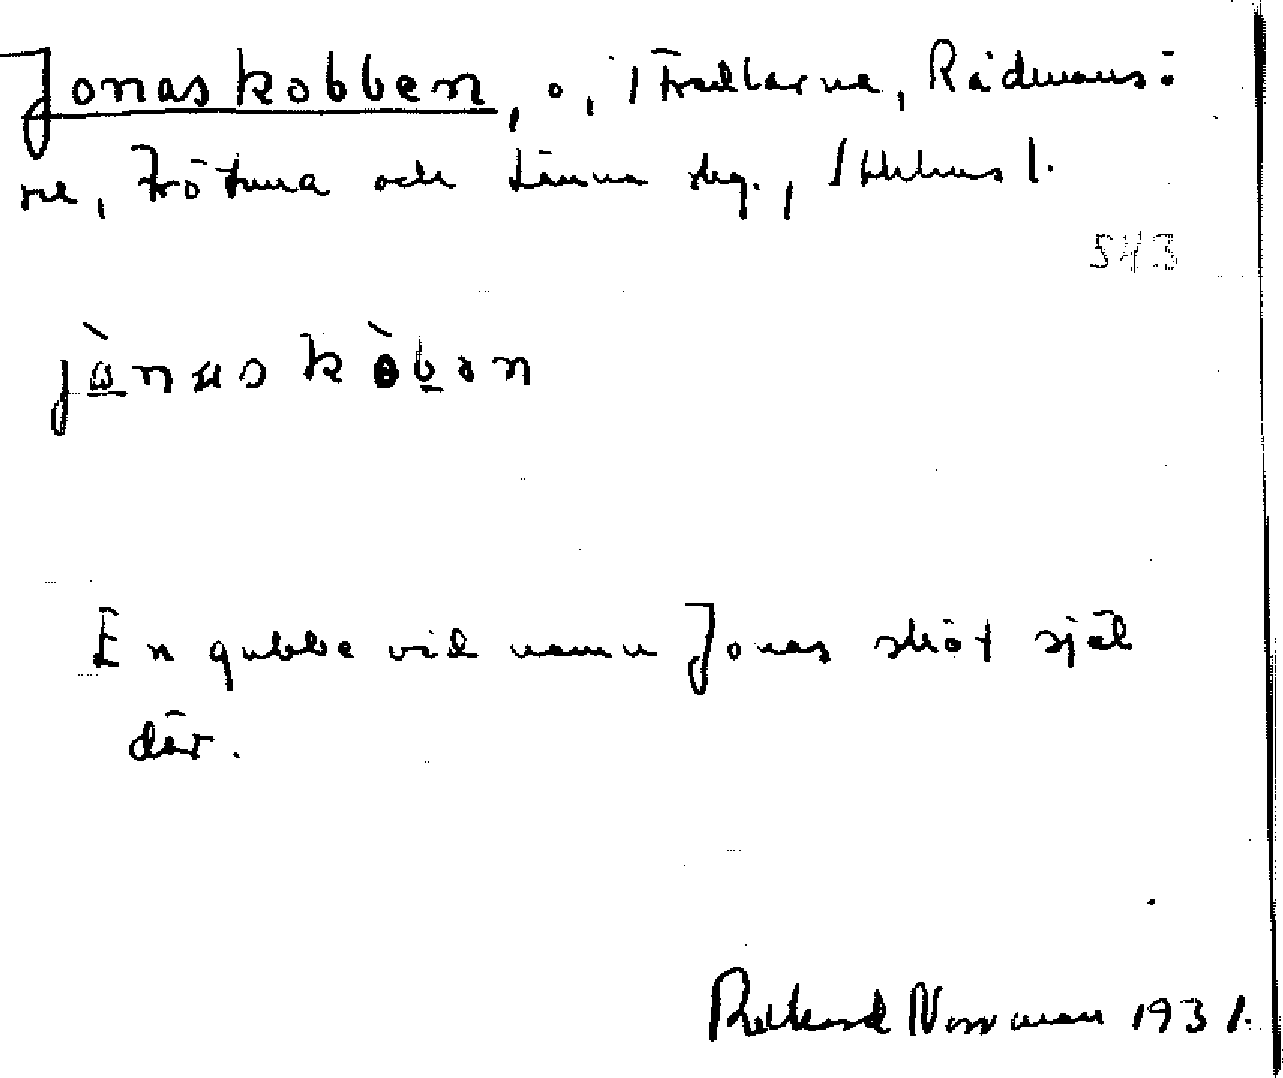 Jonaskobben, ö, Trällarna, Rådmansö
sn, Frötuna och Länna skg., Sthlms l.
543
jɷ̀nas kòbən
En gubbe vid namn Jonas sköt säl
där.
Rickard Norrman 1931.